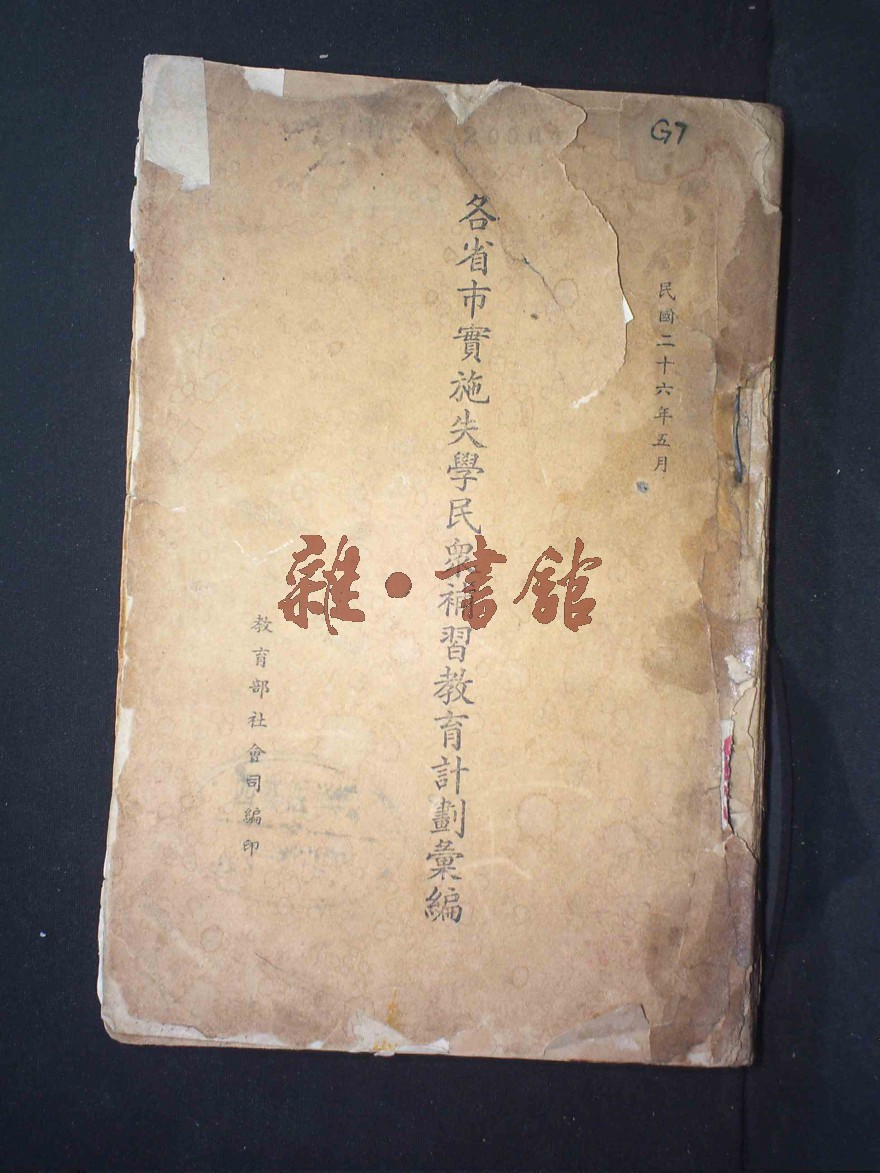 G7
民國二十六年五月
各省市實施失學民眾補習教育計劃彙編
教育部社會司編印
雜·書館